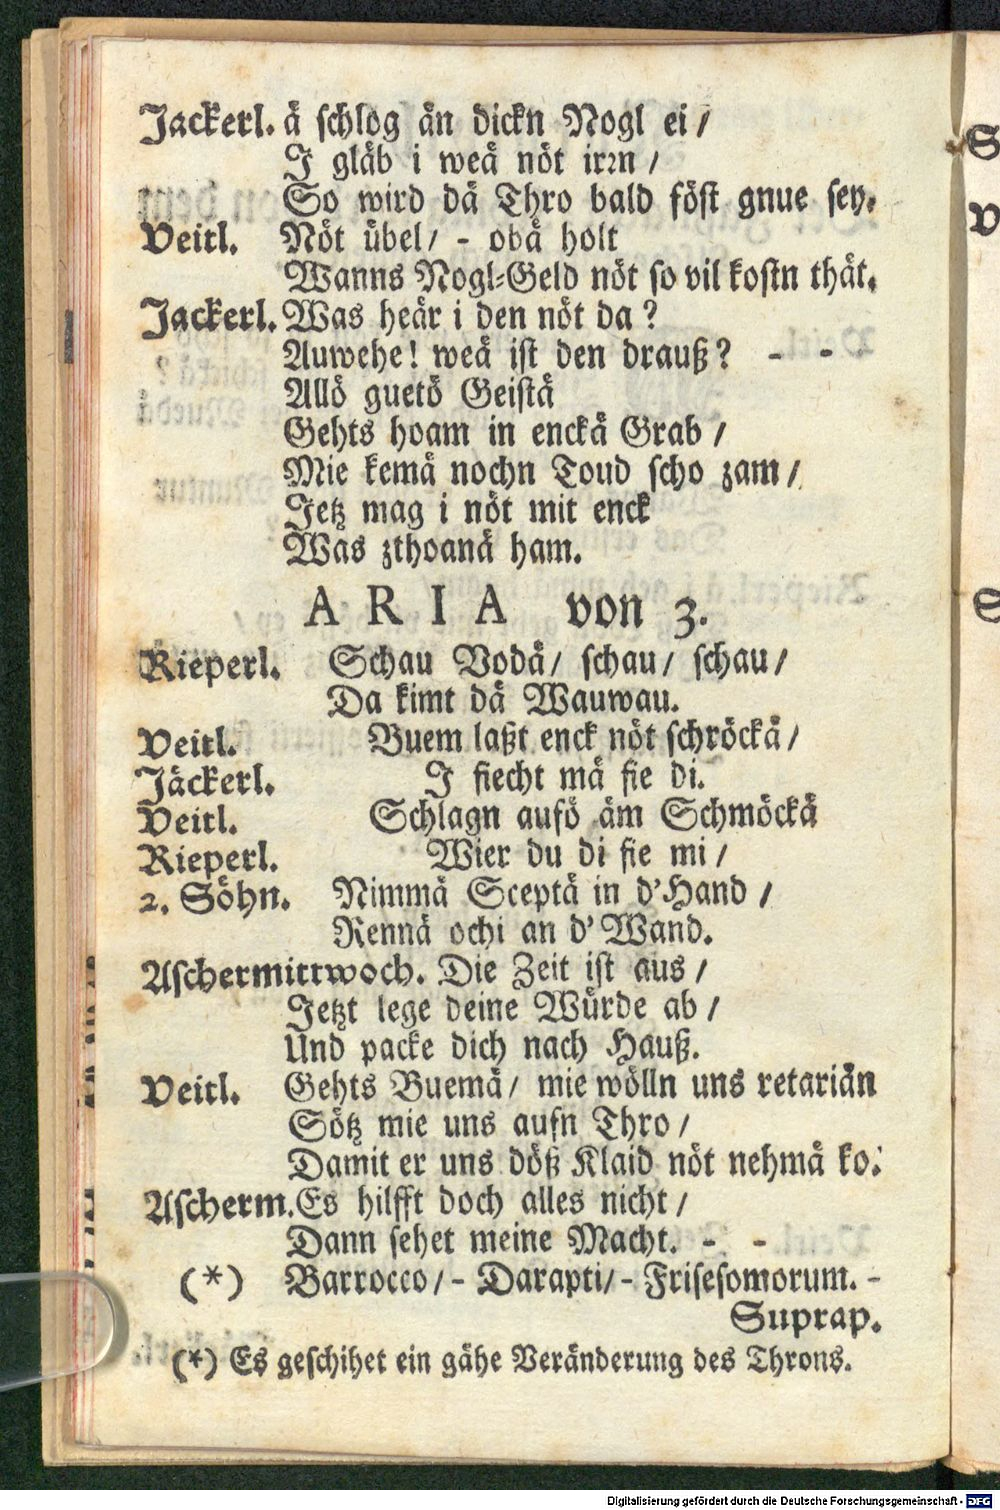 Jackerl. ä schlog än dickn Nogl ei /
J gläb i weä nöt irrn /
So wird dä Thro bald föst gnue sey.
Veitl. Nöt übel / - obä holt
Wanns Nogl-Geld nöt so vil kostn thät.
Jackerl. Was heär i den nöt da?
Auwehe! weä ist den drauß? - - -
Allö guetö Geistä
Gehts hoam in enckä Grab /
Mie kemä nochn Toud scho zam /
Jetz mag i nöt mit enck
Was zthoanä ham.
ARIA von 3.
Rieperl. Schau Vodä / schau / schau /
Da kimt dä Wauwau.
Veitl. Buem laßt enck nöt schröckä /
Jäckerl. J siecht mä sie di.
Veitl. Schlagn aufö äm Schmöckä
Rieperl. Wier du di sie mi /
2. Söhn. Nimmä Sceptä in d' Hand /
Rennä ochi an d' Wand.
Aschermittwoch. Die Zeit ist aus /
Jetzt lege deine Würde ab /
Und packe dich nach Hauß.
Veitl. Gehts Buemä / mie wölln uns retariän
Sötz mie uns aufn Thro /
Damit er uns döß Klaid nöt nehmä ko.
Ascherm. Es hilfft doch alles nicht /
Dann sehet meine Macht. - -
(*) Barrocco / - Darapti / - Frisesomorum. -
Suprap.
(*) Es geschihet ein gähe Veränderung des Throns.
Digitalisierung gefördert durch die Deutsche Forschungsgemeinschaft - DFG